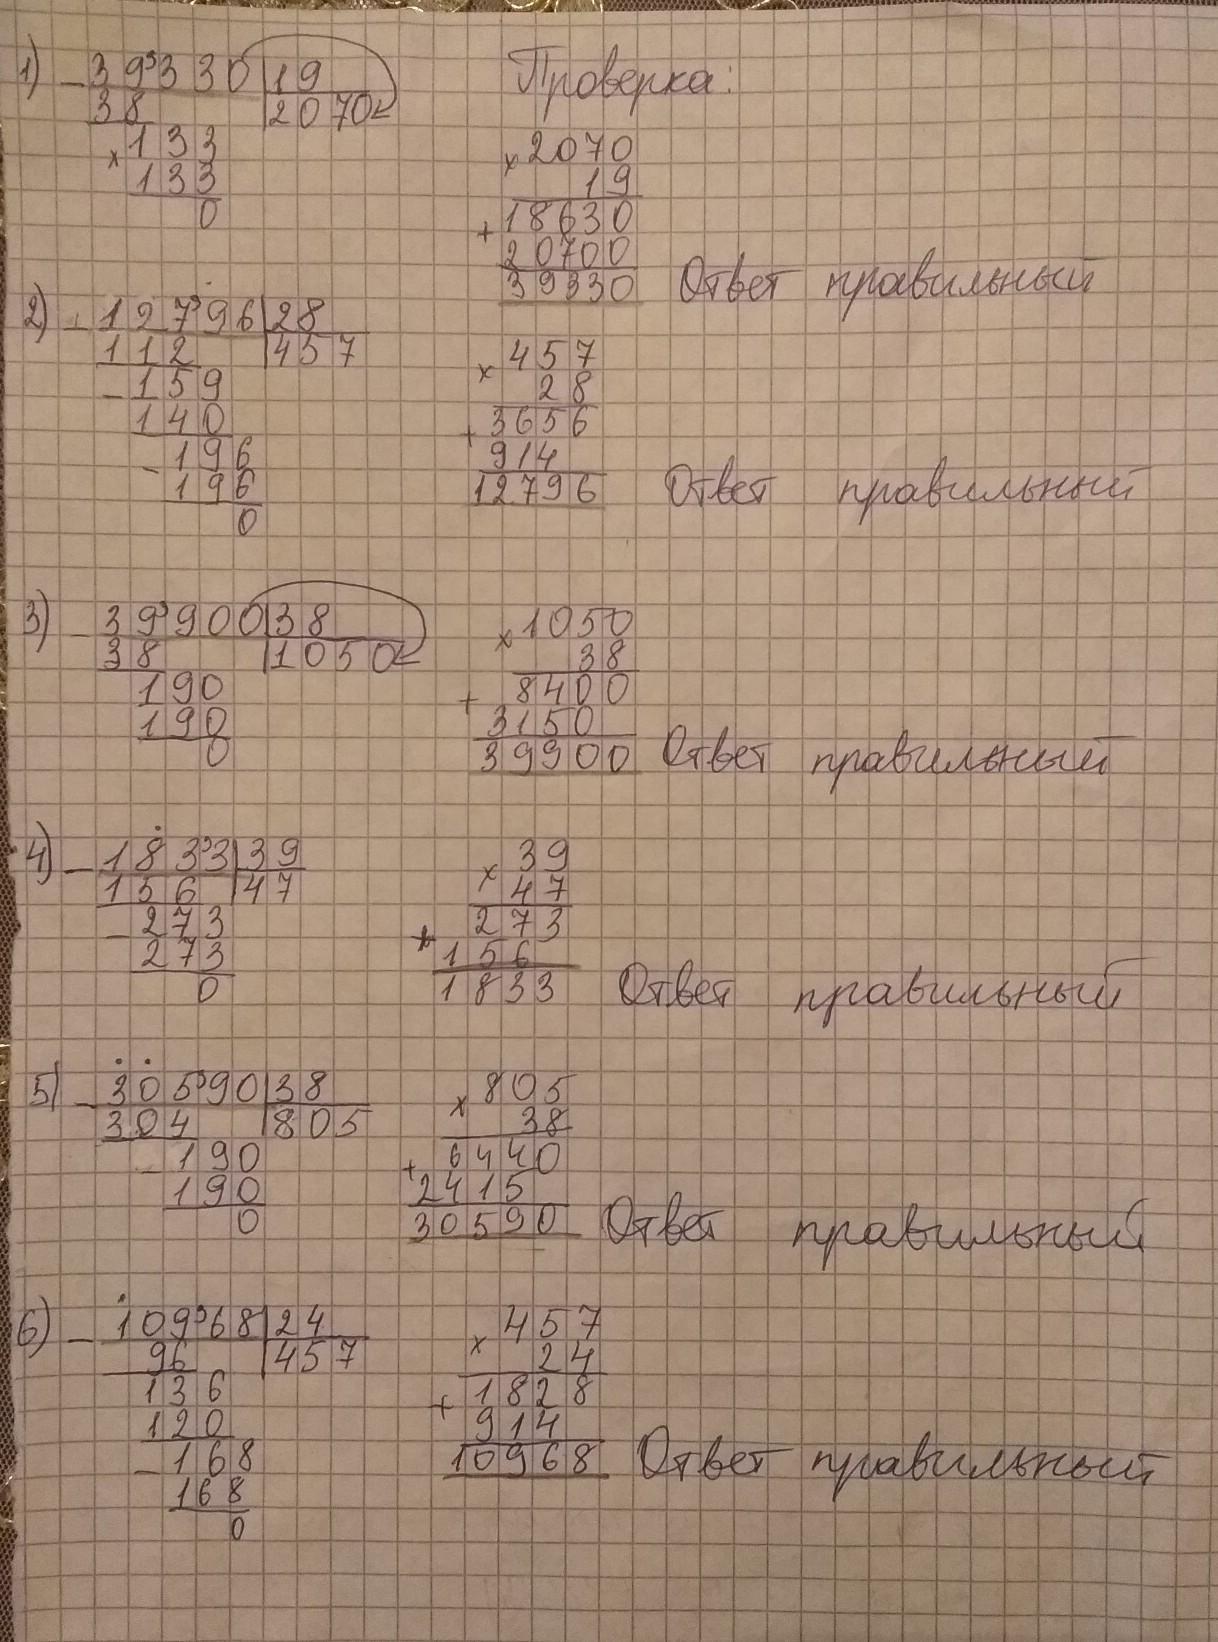 1) - 39330 | 19 Проверка:
38 | 2070
x 133 x 2070
133 19
0 + 18630
20700
39330 Ответ правильный
2) - 12796 | 28
112 | 457 x 457
- 159 28
140 + 3656
- 196 914
196 12796 Ответ правильный
0
3) - 39900 | 38 x 1050
38 | 1050 38
190 + 8400
190 3150
0 39900 Ответ правильный
4) - 1833 | 39 x 39
156 | 47 47
- 273 + 273
273 156
0 1833 Ответ правильный
5) - 30590 | 38 x 805
304 | 805 38
- 190 + 6440
190 2415
0 30590 Ответ правильный
6) - 10968 | 24 x 457
96 | 457 24
136 + 1828
120 914
- 168 10968 Ответ правильный
168
0